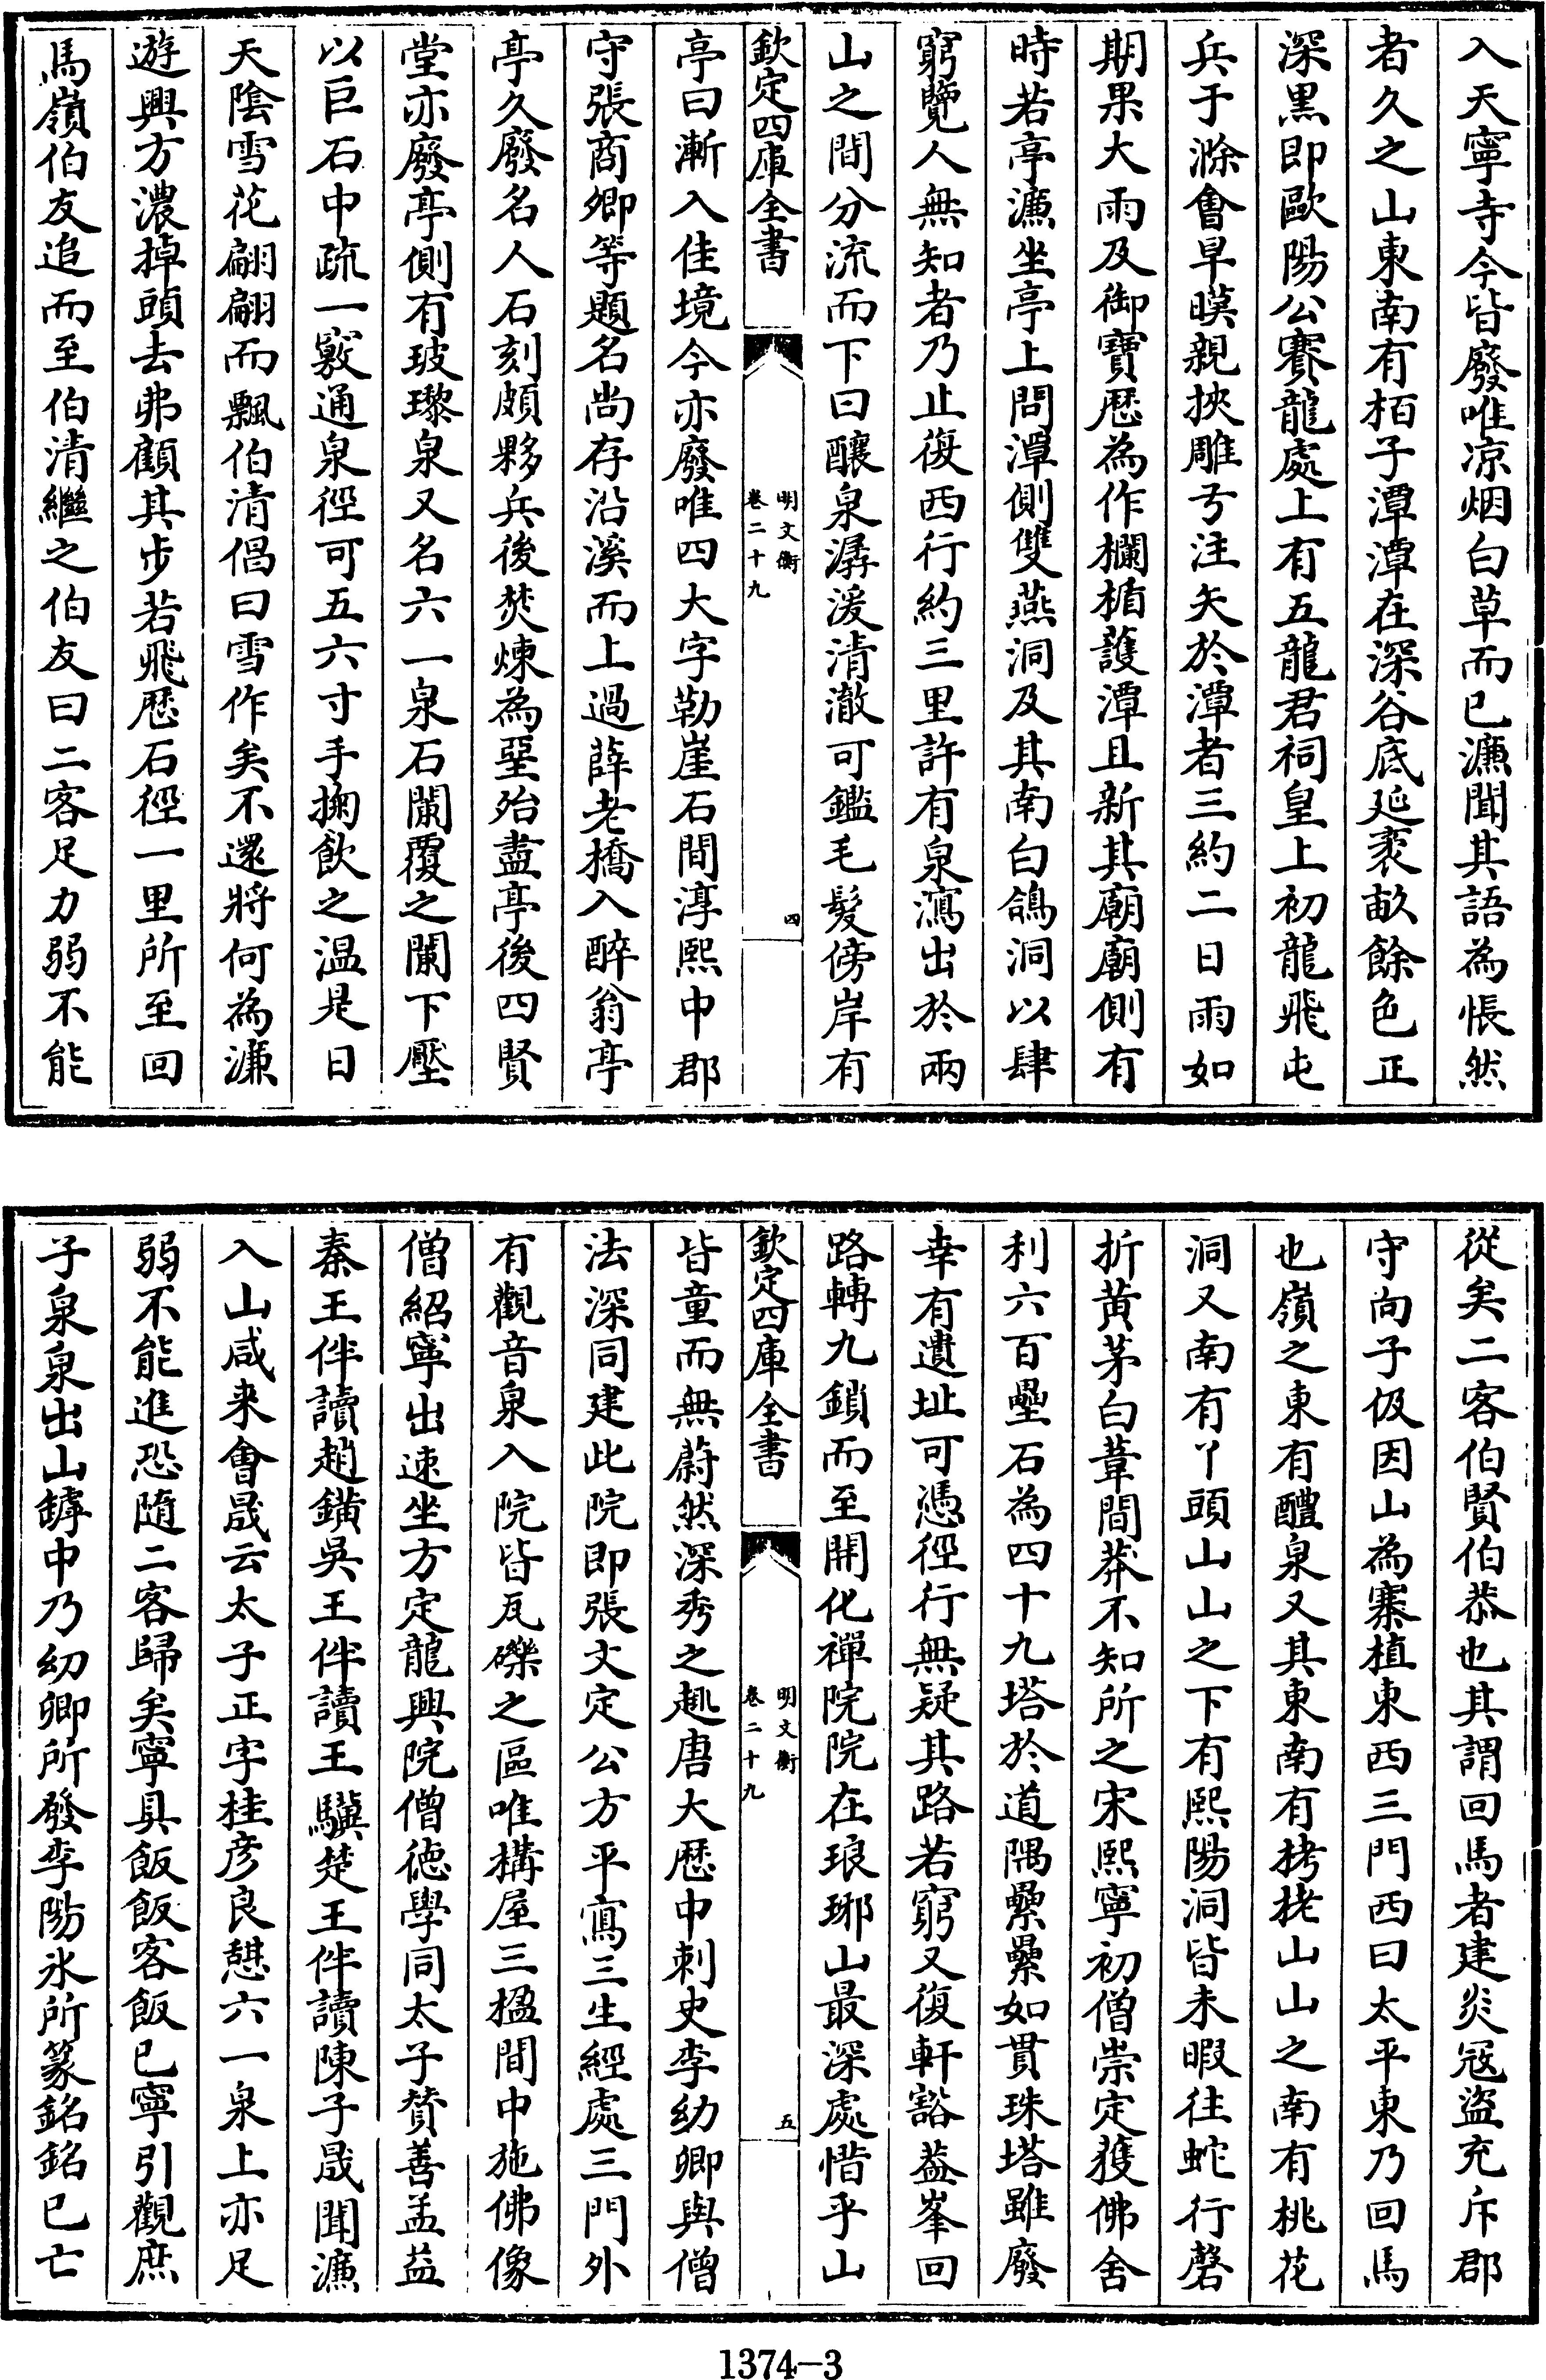 入天寧寺今皆廢唯凉烟白草而已濂聞其語為悵然
者久之山東南有栢子潭潭在深谷底延袤畝餘色正
深黑即歐陽公賽龍處上有五龍君祠皇上初龍飛屯
兵于滁會旱暵親挾雕弓注矢於潭者三約二日雨如
期果大雨及御寶厯為作欄楯護潭且新其廟廟側有
時若亭濂坐亭上問潭側雙燕洞及其南白鴿洞以肆
窮覽人無知者乃止復西行約三里許有泉瀉出於兩
山之間分流而下曰釀泉潺湲清澈可鑑毛髮傍岸有
欽定四庫全書
明文衡
卷二十九
四
亭曰漸入佳境今亦廢唯四大字勒崖石間淳熙中郡
守張商卿等題名尚存沿溪而上過薛老橋入醉翁亭
亭久廢名人石刻頗夥兵後焚煉為堊殆盡亭後四賢
堂亦廢亭側有玻瓈泉又名六一泉石闌覆之闌下壓
以巨石中疏一竅通泉徑可五六寸手掬飲之温是日
天陰雪花翩翩而飄伯清倡曰雪作矣不還將何為濂
遊興方濃掉頭去弗顧其步若飛厯石徑一里所至回
馬嶺伯友追而至伯清繼之伯友曰二客足力弱不能
從矣二客伯賢伯恭也其謂回馬者建炎冦盜充斥郡
守向子伋因山為寨植東西三門西曰太平東乃回馬
也嶺之東有醴泉又其東南有栲栳山山之南有桃花
洞又南有丫頭山山之下有熙陽洞皆未暇往蛇行磬
折黄茅白葦間莽不知所之宋熙寧初僧崇定獲佛舍
利六百壘石為四十九塔於道隅纍纍如貫珠塔雖廢
幸有遺址可憑徑行無疑其路若窮又復軒豁葢峯回
路轉九鎖而至開化禪院院在琅琊山最深處惜乎山
欽定四庫全書
明文衡
卷二十九
五
皆童而無蔚然深秀之趣唐大厯中刺史李幼卿與僧
法深同建此院即張文定公方平寫二生經處三門外
有觀音泉入院皆瓦礫之區唯構屋三楹間中施佛像
僧紹寧出速坐方定龍興院僧德學同太子賛善孟益
秦王伴讀趙鐄吳王伴讀王驥楚王伴讀陳子晟聞濂
入山咸来會晟云太子正字桂彦良憇六一泉上亦足
弱不能進恐随二客歸矣寧具飯飯客飯已寧引觀庶
子泉泉出山罅中乃幼卿所發李陽氷所篆銘銘已亡
1374-3